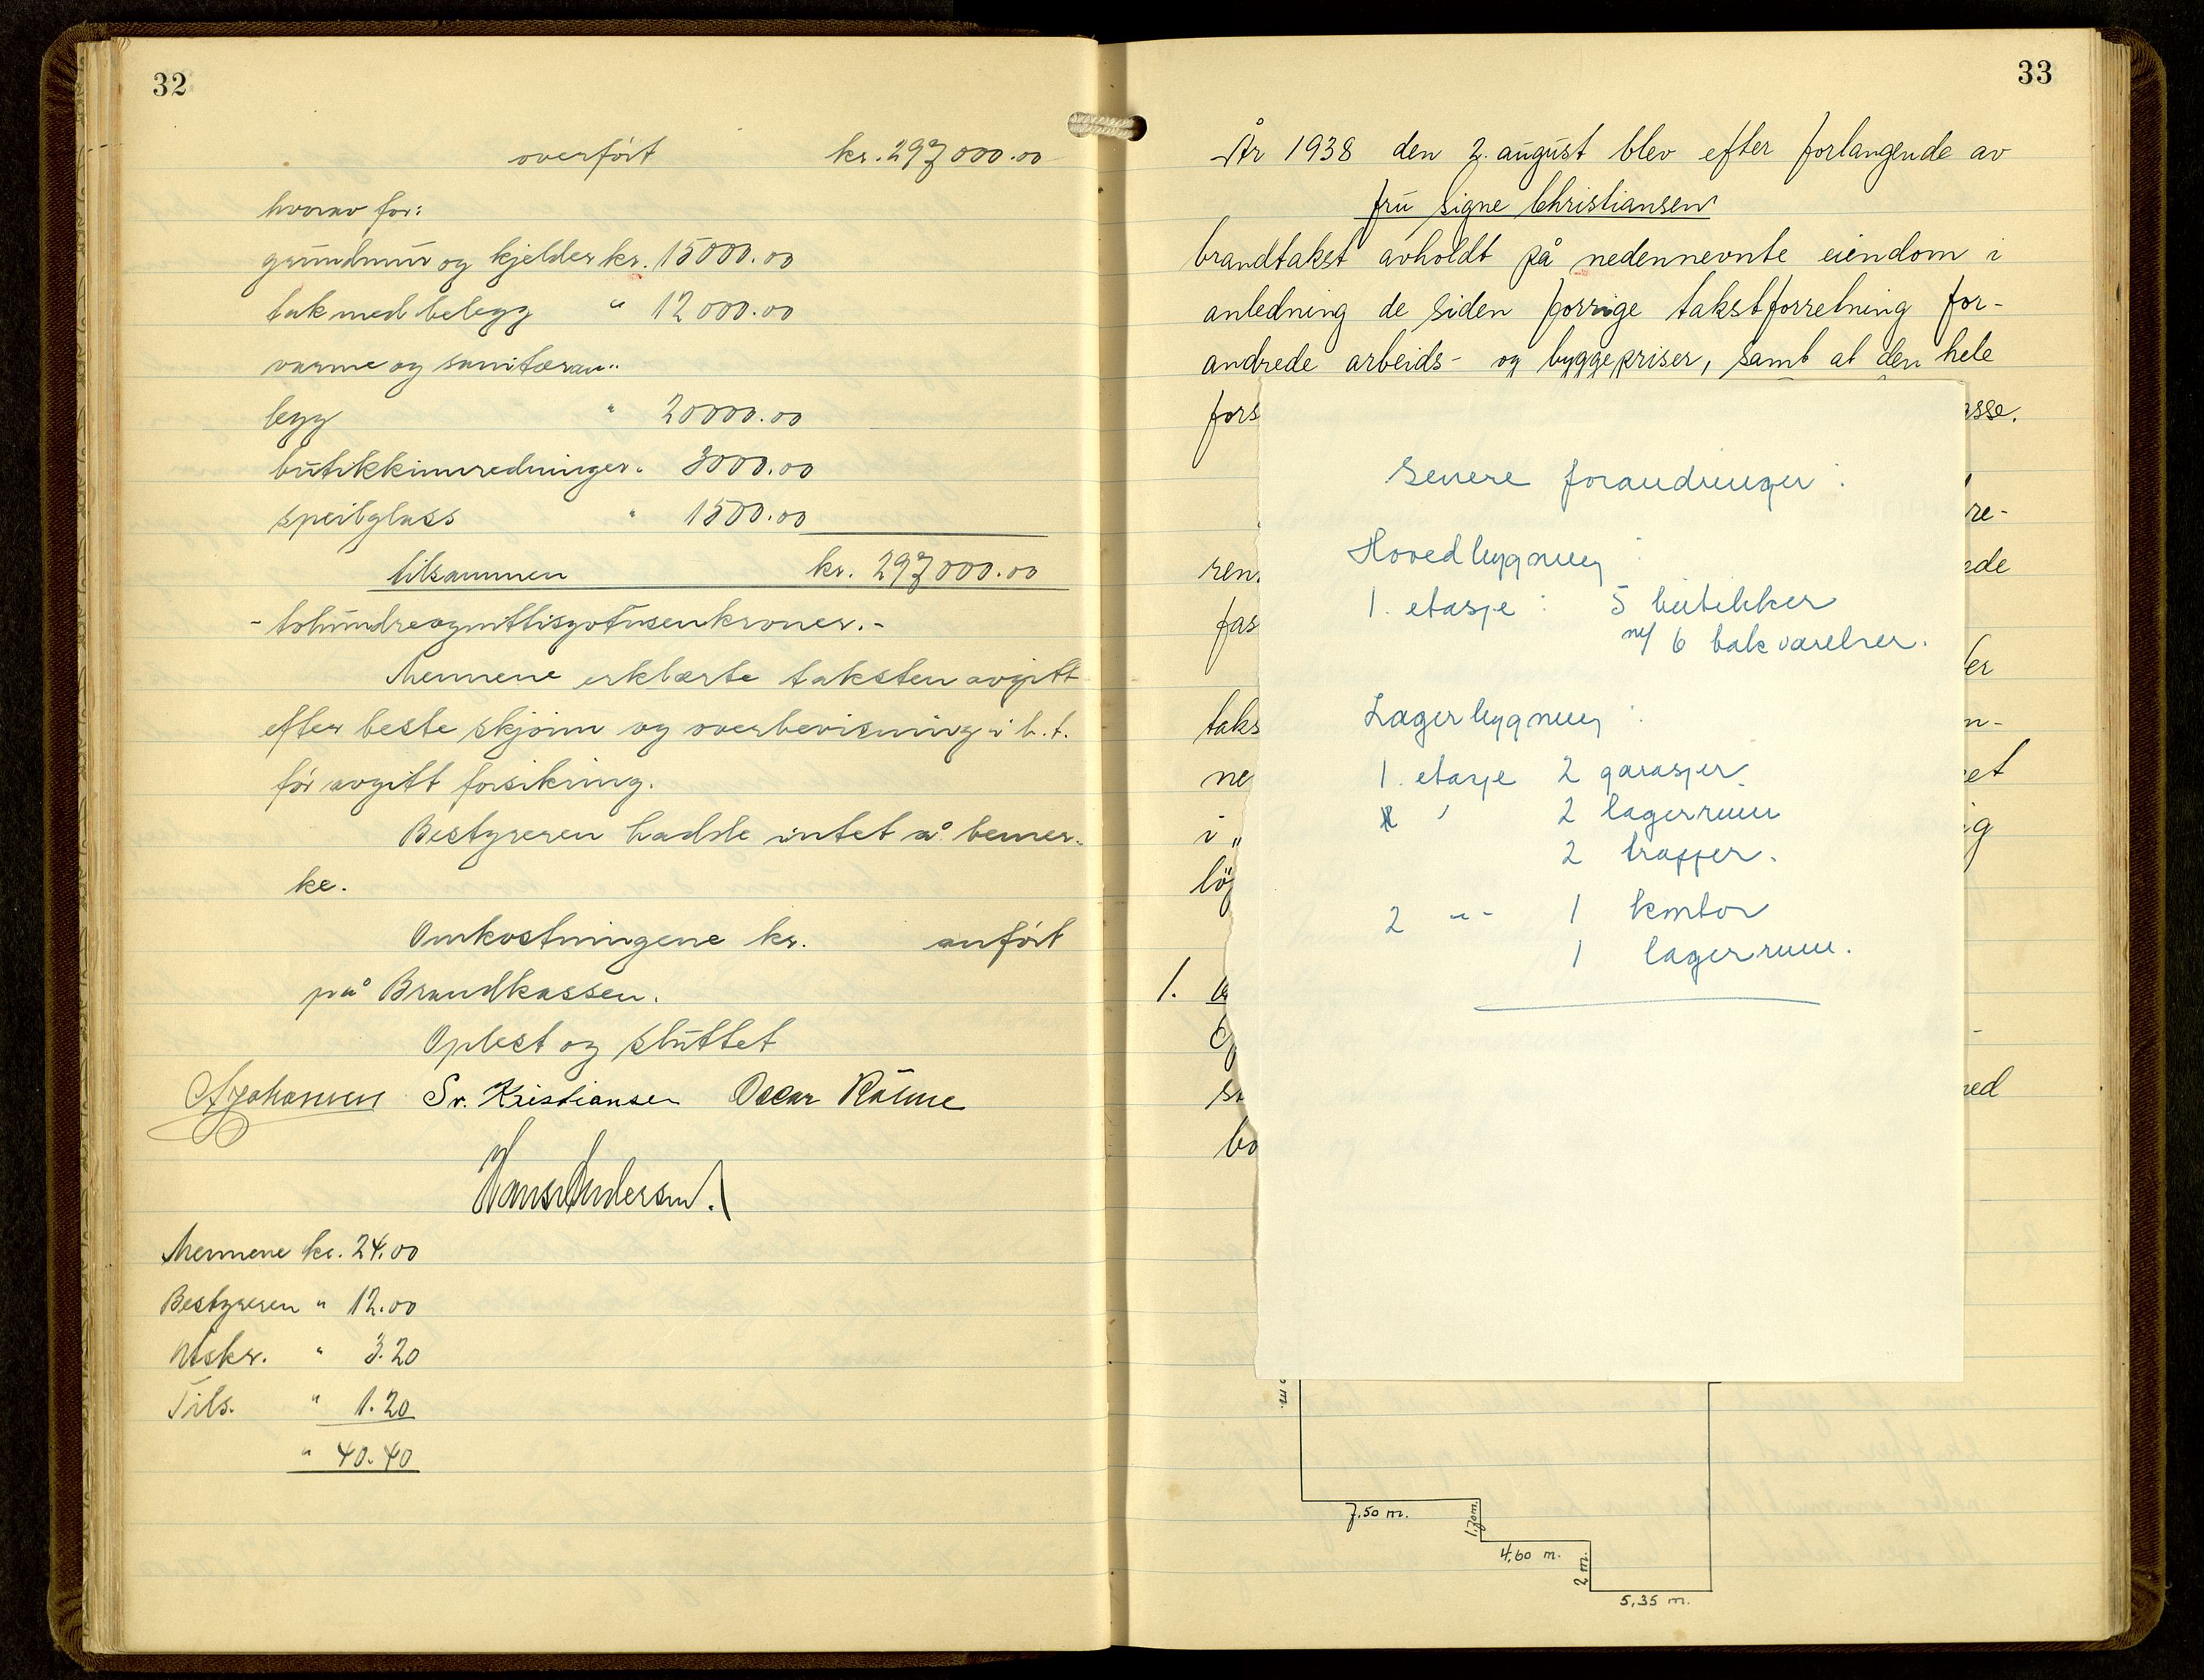 32
overført kr. 297000.00
hvorav for:
grundmur og kjelder kr. 15000.00
tak med belegg " 12000.00
varme og sanitæran-
legg " 20000.00
butikkinnredninger " 3000.00
speilglass " 1500.00
tilsammen kr. 297000.00
- tohundreognittisyvtusenkroner. -
Mennene erklærte taksten avgitt
efter beste skjønn og overbevisning i h.t.
før avgitt forsikring.
Bestyreren hadde intet å bemer-
ke.
Omkostningene kr. anført
på Brandkassen.
Oplest og sluttet
A Johansen Sv. Kristiansen Oscar Råme
Hans Andersen.
Mennene kr. 24.00
Bestyreren " 12.00
Utskr. " 3.20
Tils. " 1.20
" 40.40
33
År 1938 den 2. august blev efter forlangende av
fru Signe Christiansen
brandtakst avholdt på nedennevnte eiendom i
anledning de siden forrige takstforretning for-
andrede arbeids- og byggepriser, samt at den hele
fors
asse.
re-
ren.
ede
fas
er
taks
n-
ne
et
i „
ig
lö
1.
s
ned
bo
Senere forandringer:
Hovedbygning:
1. etasje: 5 butikker
m/ 6 bakværelser.
Lagerbygning:
1. etasje 2 garasjer
" 2 lagerrum
2 trapper.
2 -"- 1 kontor
1 lagerrum.
m.
7.50 m.
1.70 m.
4,60 m.
2 m.
5,35 m.